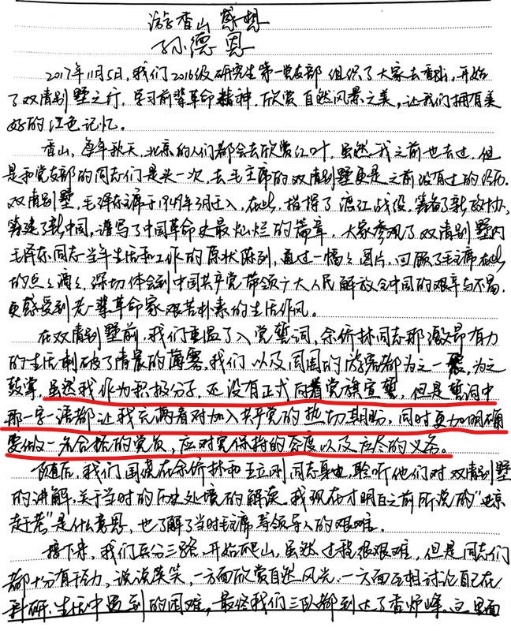 游香山感想
孙德恩
2017年11月5日,我们2016级研究生第一党支部组织了大家去香山,开始
了双清别墅之行,学习前辈革命精神,欣赏自然风景之美,让我们拥有美
好的红色记忆。
香山,每年秋天,北京的人们都会去欣赏红叶,虽然我之前也去过,但
是和党支部的同志们是头一次,去毛主席的双清别墅更是之前没有过的经历。
双清别墅,毛泽东于1949年3月主入,在此,指挥了渡江战役,筹备了新政协,
筹建了新中国,谱写了中国革命史最灿烂的篇章。大家参观了双清别墅内
毛泽东同志当年生活和工作的原状陈列,通过一幅幅图片,回顾了毛主席在此
的点点滴滴,深切体会到中国共产党带领广大人民解放全中国的艰辛与不易,
更感受到老一辈革命家艰苦朴素的生活作风。
在双清别墅前,我们重温了入党誓词,余侨林同志那激昂有力
的声音刺破了清晨的薄雾,我们以及周围的游客都为之一震,为之
鼓掌,虽然我作为积极分子,还没有正式向着党旗宣誓,但是誓词中
那一字一语都让我充满着对加入共产党的热切期盼,同时更加明确
要做一名合格的党员,应对党保持的态度以及应尽的义务。
随后,我们围绕在余侨林和王立刚同志身边,聆听他们对双清别墅
的讲解,关于当时的历史处境的解读,我现在才明白之前所说的“进京
赶考”是什么意思,也了解了当时主席等领导人的艰难。
接下来,我们兵分三路,开始爬山,虽然过程很艰难,但是同志们
都十分有活力,说说笑笑,一方面欣赏自然风光,一方面互相讨论自己在
科研、生活中遇到的困难,最终我们三队都到达了香炉峰,这里面